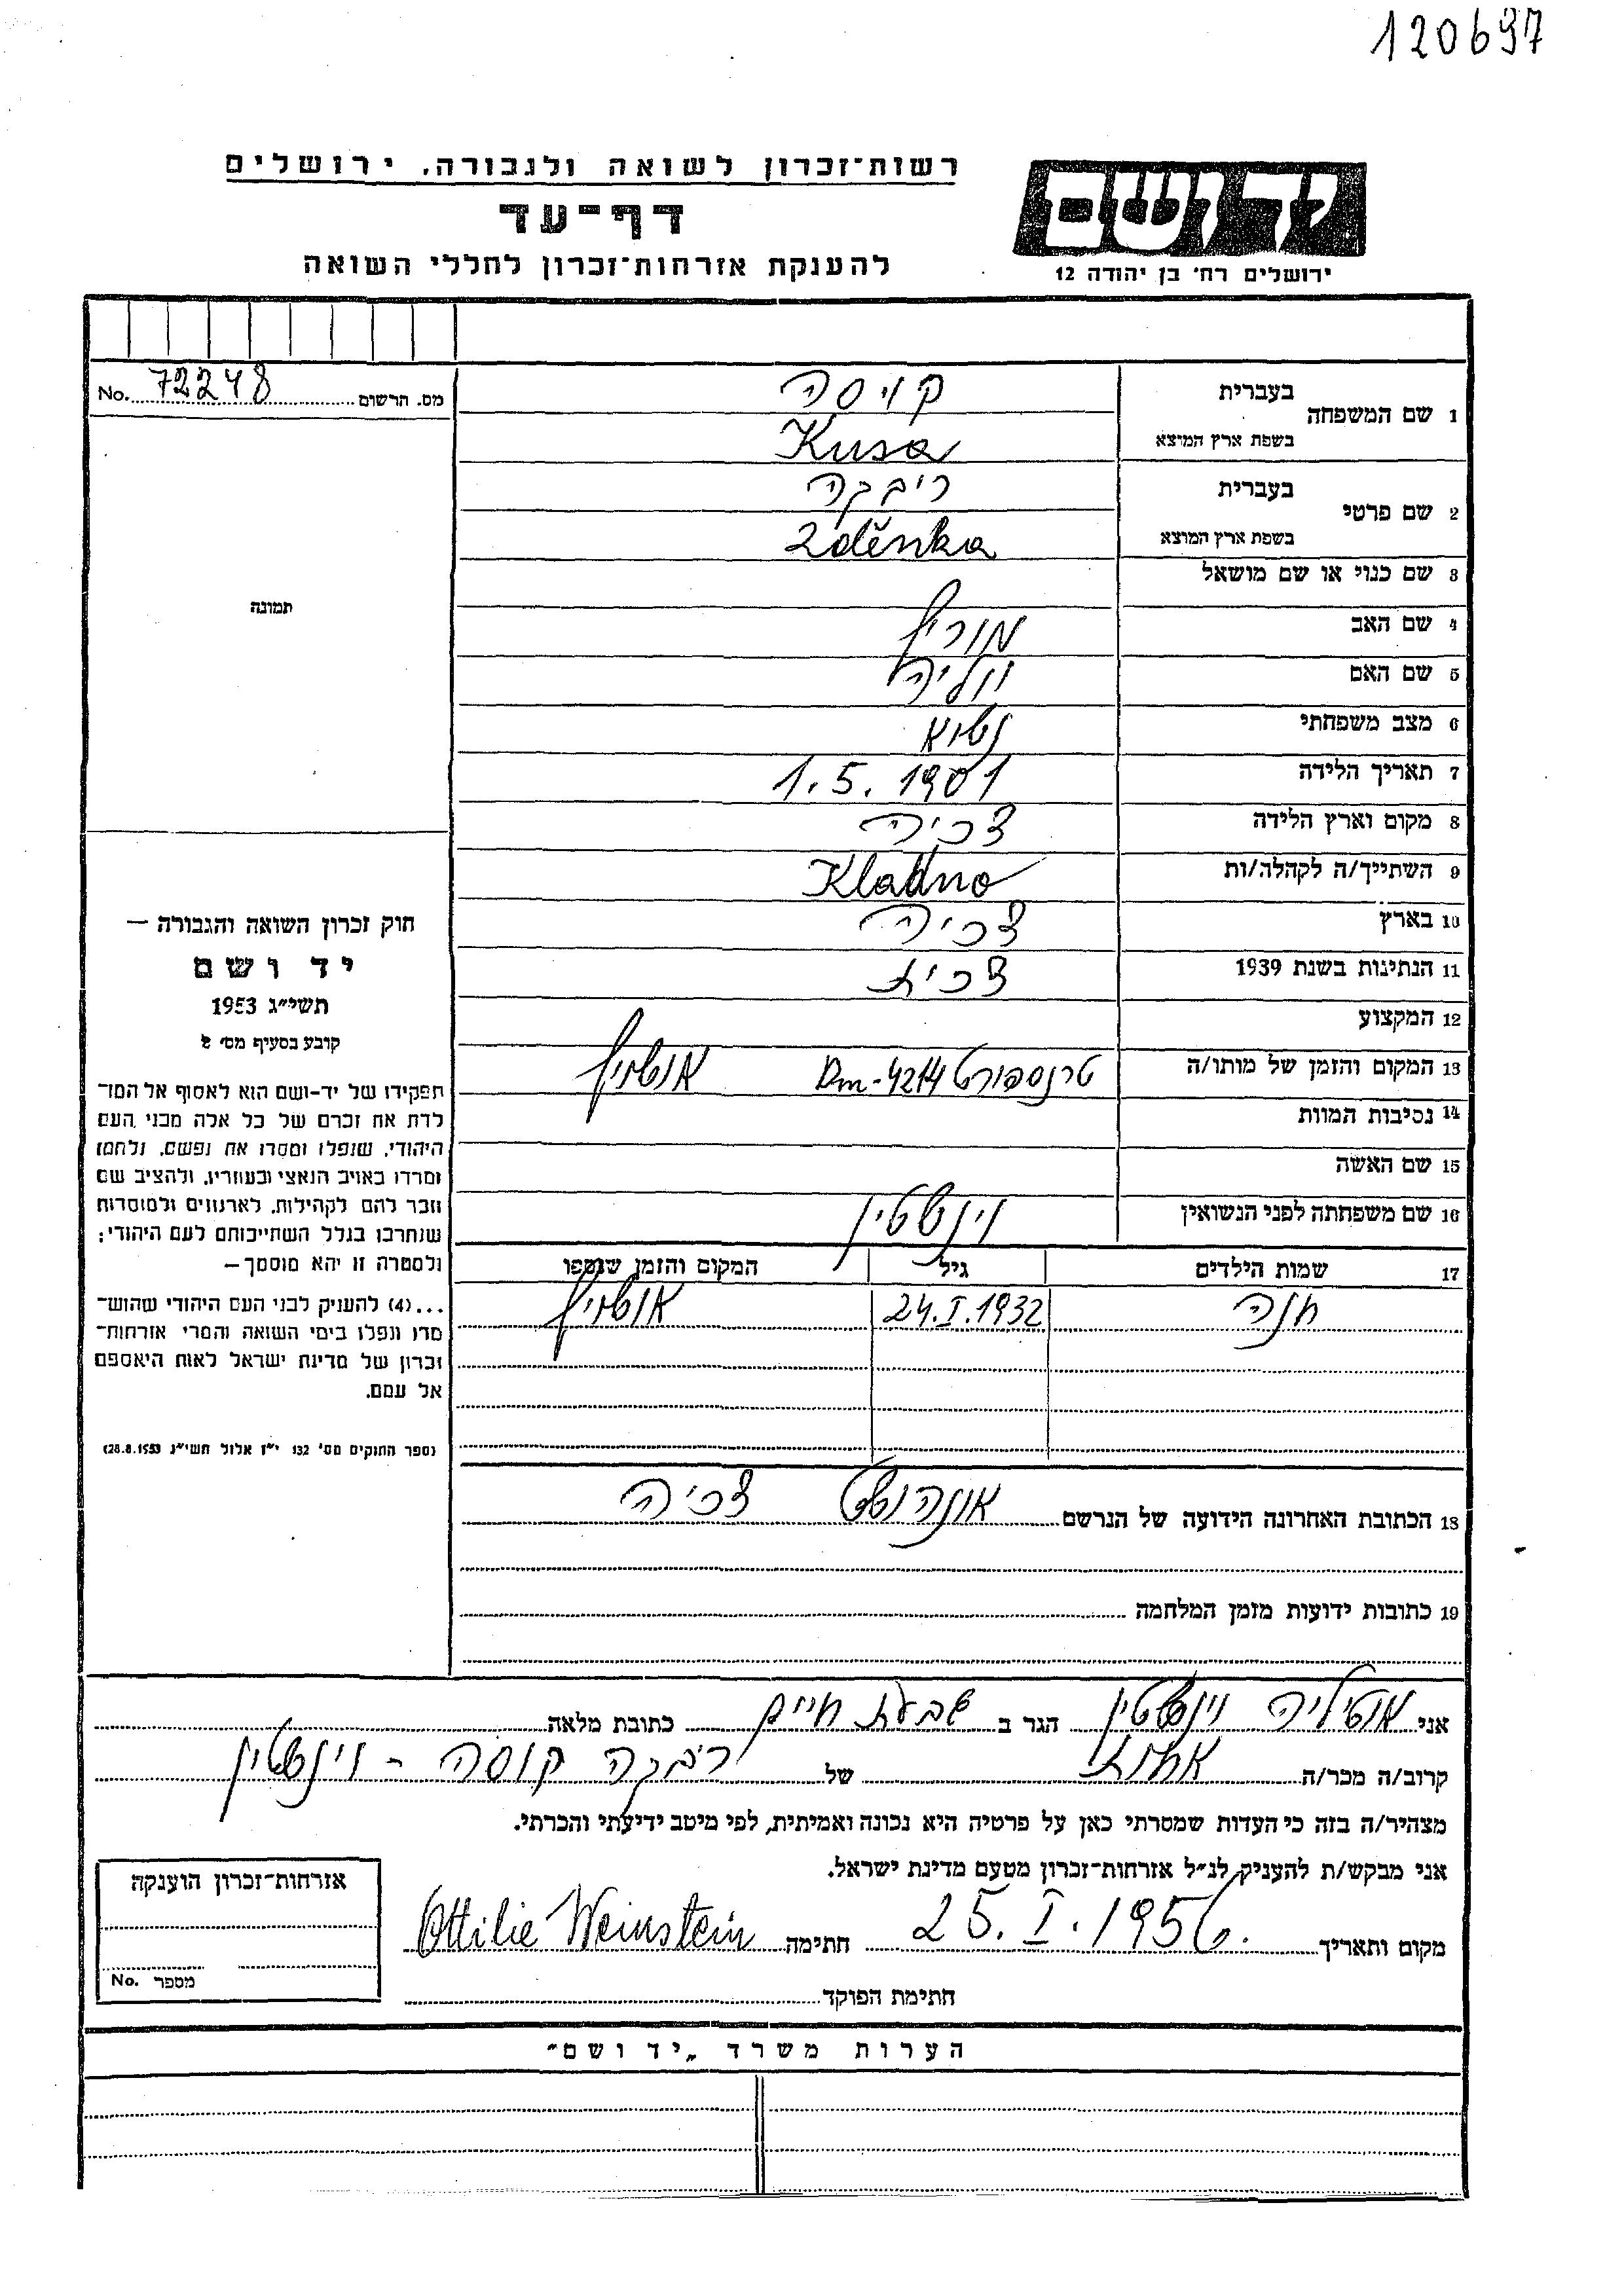 120697
רשות־זכרון לשואה ולגבורה, ירושלים
דף־עד
להענקת אזרחות־זכרון לחללי השואה
יד ושם
ירושלים רח' בן יהודה 12
מס. הרשום 72248 No.
1 שם המשפחה
בעברית קויסה
בשפת ארץ המוצא Kusa
2 שם פרטי
בעברית ריבקה
בשפת ארץ המוצא Zděnka
3 שם כנוי או שם מושאל
4 שם האב מוריץ
5 שם האם יוליה
6 מצב משפחתי נשוא
7 תאריך הלידה 1.5.1901
8 מקום וארץ הלידה צכיה
9 השתייך/ה לקהלה/ות Kladno
10 בארץ צכיה
11 הנתינות בשנת 1939 צכית
12 המקצוע
13 המקום והזמן של מותו/ה טרנספורט Dm-4214 אושויץ
14 נסיבות המוות
15 שם האשה
16 שם משפחתה לפני הנשואין וינשטין
17 שמות הילדים גיל המקום והזמן שנספו
חנה 24.I.1932 אושויץ
18 הכתובת האחרונה הידועה של הנרשם צכיה
19 כתובות ידועות מזמן המלחמה
תמונה
חוק זכרון השואה והגבורה —
יד ושם
תשי״ג 1953
קובע בסעיף מס׳ 2
תפקידו של יד-ושם הוא לאסוף אל המו־
לדת את זכרם של כל אלה מבני העם
היהודי, שנפלו ומסרו את נפשם, נלחמו
ומרדו באויב הנאצי ובעוזריו, ולהציב שם
וזכר להם לקהילות, לארגונים ולמוסדות
שנחרבו בגלל השתייכותם לעם היהודי;
ולמטרה זו יהא מוסמך—
...(4) להעניק לבני העם היהודי שהוש־
מדו ונפלו בימי השואה והמרי אזרחות־
זכרון של מדינת ישראל לאות היאספם
אל עמם.
(ספר החוקים מס׳ 132 י״ז אלול תשי״ג 28.8.1953)
אני אוטיליה וינשטין הגר ב גבעת חיים כתובת מלאה
קרוב/ה מכר/ה אחות של ריבקה קוסה - וינשטין
מצהיר/ה בזה כי העדות שמסרתי כאן על פרטיה היא נכונה ואמיתית, לפי מיטב ידיעתי והכרתי.
אני מבקש/ת להעניק לנ״ל אזרחות־זכרון מטעם מדינת ישראל.
מקום ותאריך 25.I.1956. חתימה Ottilie Weinstein
חתימת הפוקד
אזרחות־זכרון הוענקה
מספר No.
הערות משרד „יד ושם״